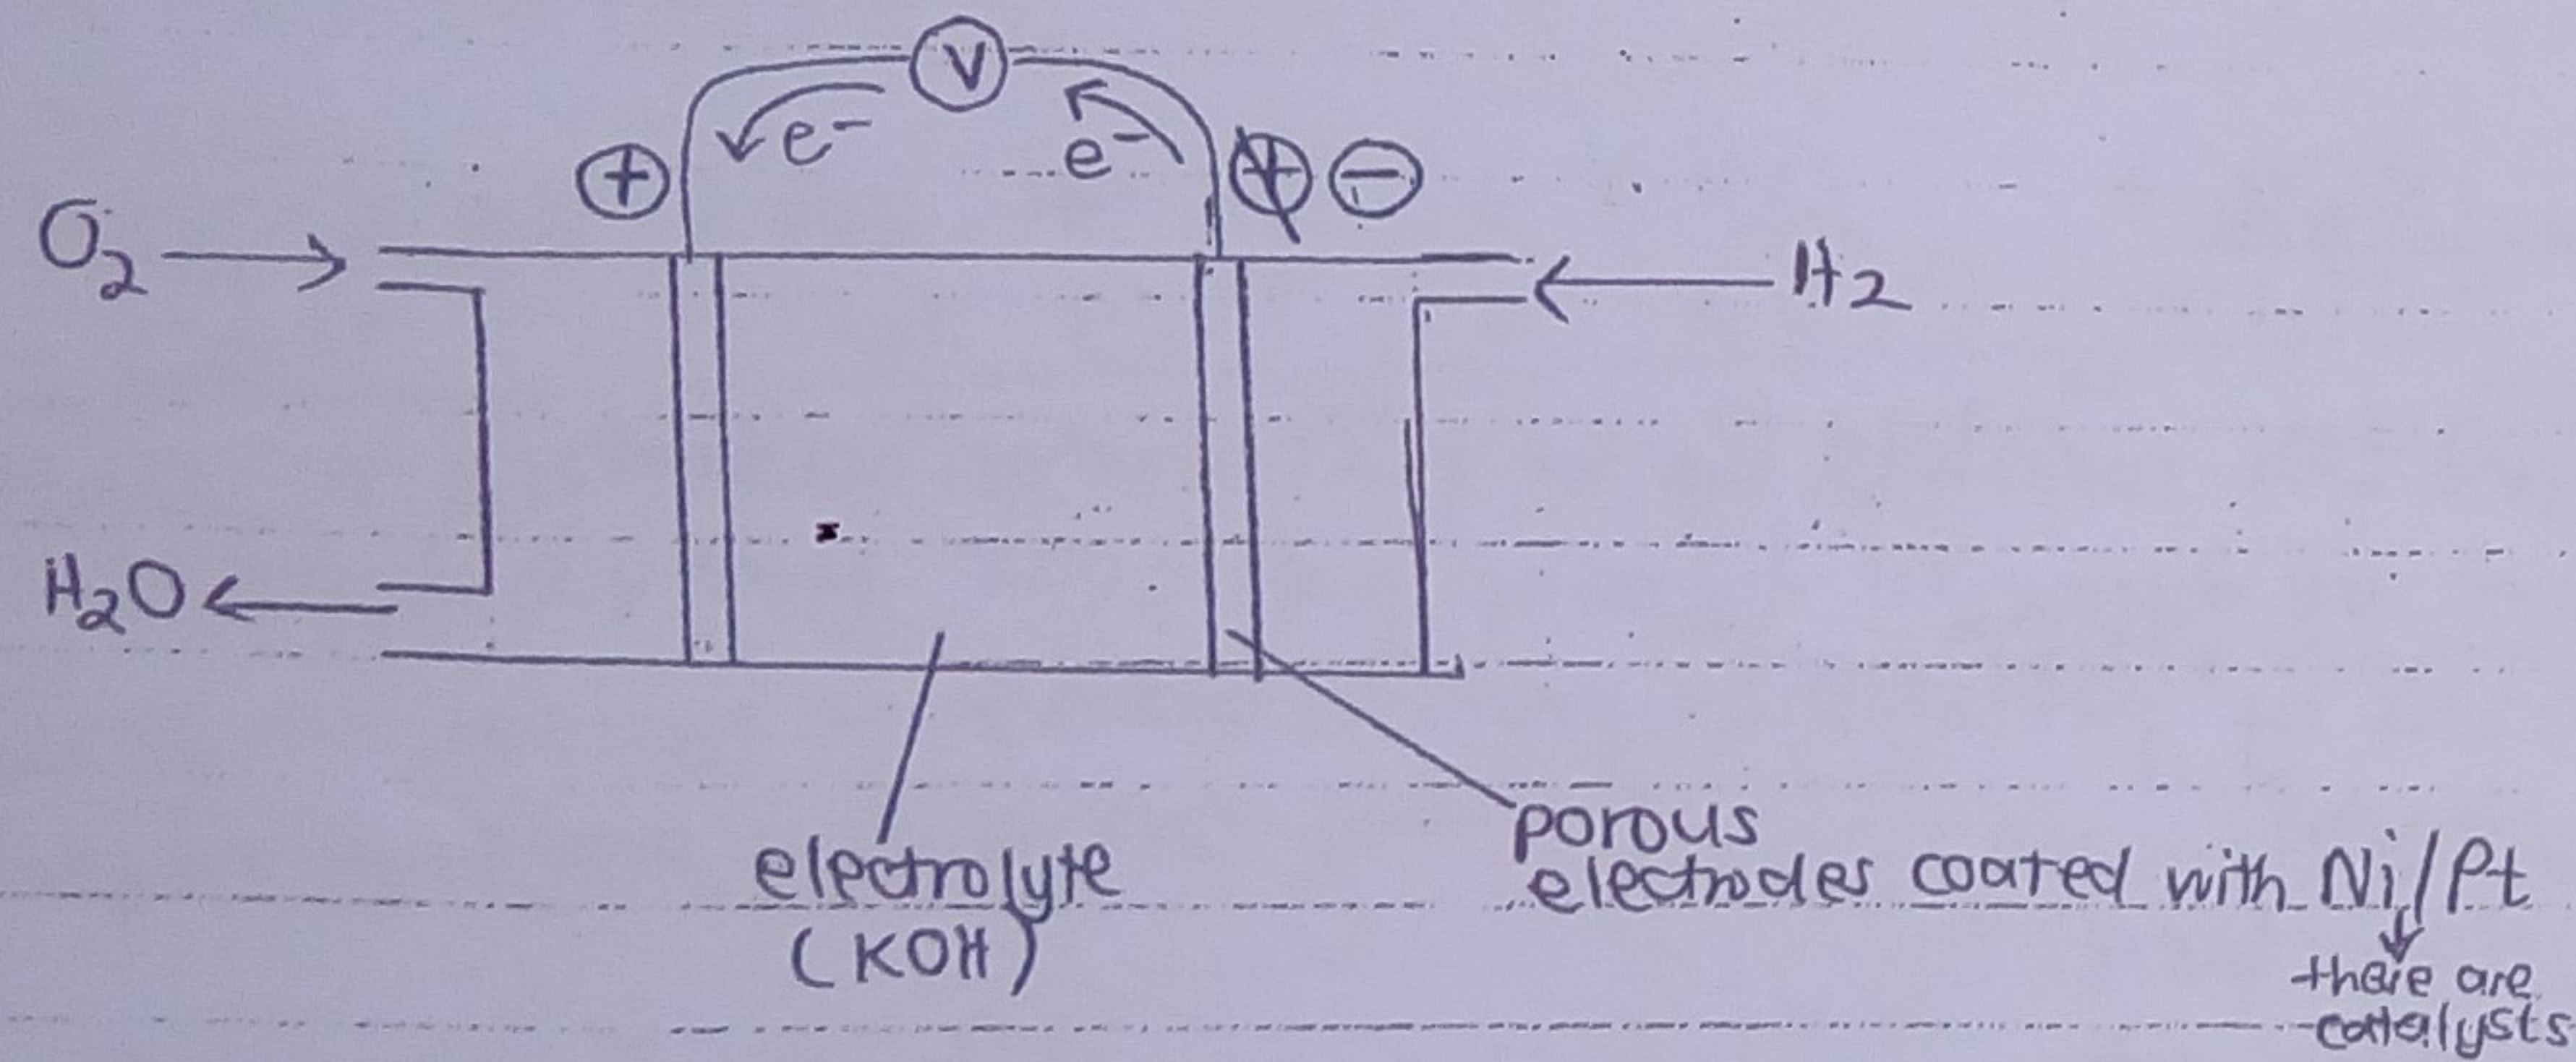 V
e⁻ e⁻
+ + −
O₂ H₂
H₂O
electrolyte
(KOH)
porous
electrodes coated with Ni/Pt
there are
catalysts